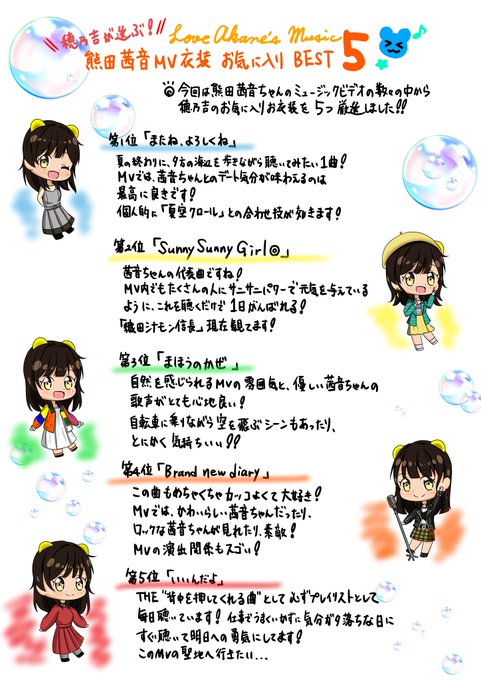 穂乃吉が選ぶ！
Love Akane's Music
熊田茜音MV衣装 お気に入り BEST 5
今回は熊田茜音ちゃんのミュージックビデオの数々の中から
穂乃吉のお気に入りお衣装を5つ厳選しました!!
第1位「またね、よろしくね」
夏の終わりに、夕方の海辺を歩きながら聴いてみたい1曲！
MVでは、茜音ちゃんとのデート気分が味わえるのは
最高に良きです！
個人的に「夏空クロール」との合わせ技が効きます！
第2位「Sunny Sunny Girl◎」
茜音ちゃんの代表曲ですね！
MV内でもたくさんの人にサニサニパワーで元気を与えている
ように、これを聴くだけで1日がんばれる！
「織田シナモン信長」現在観てます！
第3位「まほうのかぜ」
自然を感じられるMVの雰囲気と、優しい茜音ちゃんの
歌声がとても心地良い！
自転車に乗りながら空を飛ぶシーンもあったり、
とにかく気持ちいい!!
第4位「Brand new diary」
この曲もめちゃくちゃカッコよくて大好き！
MVでは、かわいらしい茜音ちゃんだったり、
ロックな茜音ちゃんが見れたり、素敵！
MVの演出関係もスゴい！
第5位「いいんだよ」
THE "背中を押してくれる曲"として必ずプレイリストとして
毎日聴いています！仕事でうまくいかずに気分が落ちる日に
すぐ聴いて明日への勇気にしてます！
このMVの聖地へ行きたい...